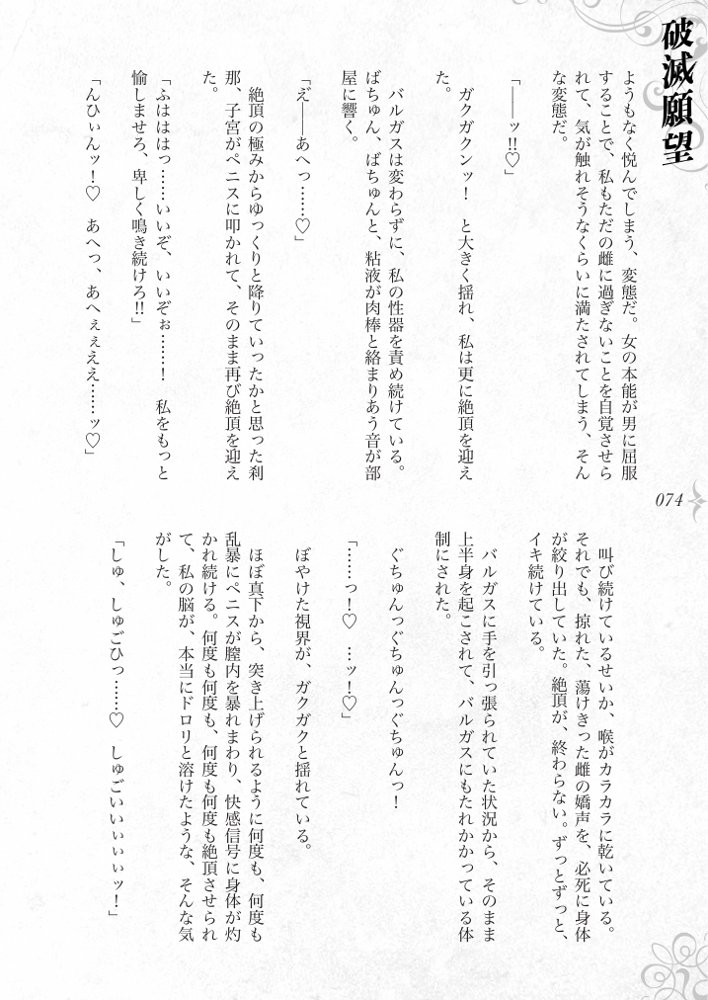 破滅願望
ようもなく悦んでしまう、変態だ。女の本能が男に屈服
することで、私もただの雌に過ぎないことを自覚させら
れて、気が触れそうなくらいに満たされてしまう、そん
な変態だ。
「――ッ!!♡」
ガクガクンッ!　と大きく揺れ、私は更に絶頂を迎え
た。
バルガスは変わらずに、私の性器を責め続けている。
ばちゅん、ばちゅんと、粘液が肉棒と絡まりあう音が部
屋に響く。
「え゛――あへっ……♡」
絶頂の極みからゆっくりと降りていったかと思った刹
那、子宮がペニスに叩かれて、そのまま再び絶頂を迎え
た。
「ふはははっ……いいぞ、いいぞぉ……!　私をもっと
愉しませろ、卑しく鳴き続けろ!!」
「んひぃんッ!♡　あへっ、あへぇぇええ……ッ♡」
074
叫び続けているせいか、喉がカラカラに乾いている。
それでも、掠れた、蕩けきった雌の嬌声を、必死に身体
が絞り出していた。絶頂が、終わらない。ずっとずっと、
イキ続けている。
バルガスに手を引っ張られていた状況から、そのまま
上半身を起こされて、バルガスにもたれかかっている体
制にされた。
ぐちゅんっぐちゅんっぐちゅんっ!
「……っ!♡　…ッ!♡」
ぼやけた視界が、ガクガクと揺れている。
ほぼ真下から、突き上げられるように何度も、何度も
乱暴にペニスが膣内を暴れまわり、快感信号に身体が灼
かれ続ける。何度も何度も、何度も何度も絶頂させられ
て、私の脳が、本当にドロリと溶けたような、そんな気
がした。
「しゅ、しゅごひっ……♡　しゅごいいぃぃぃッ!」